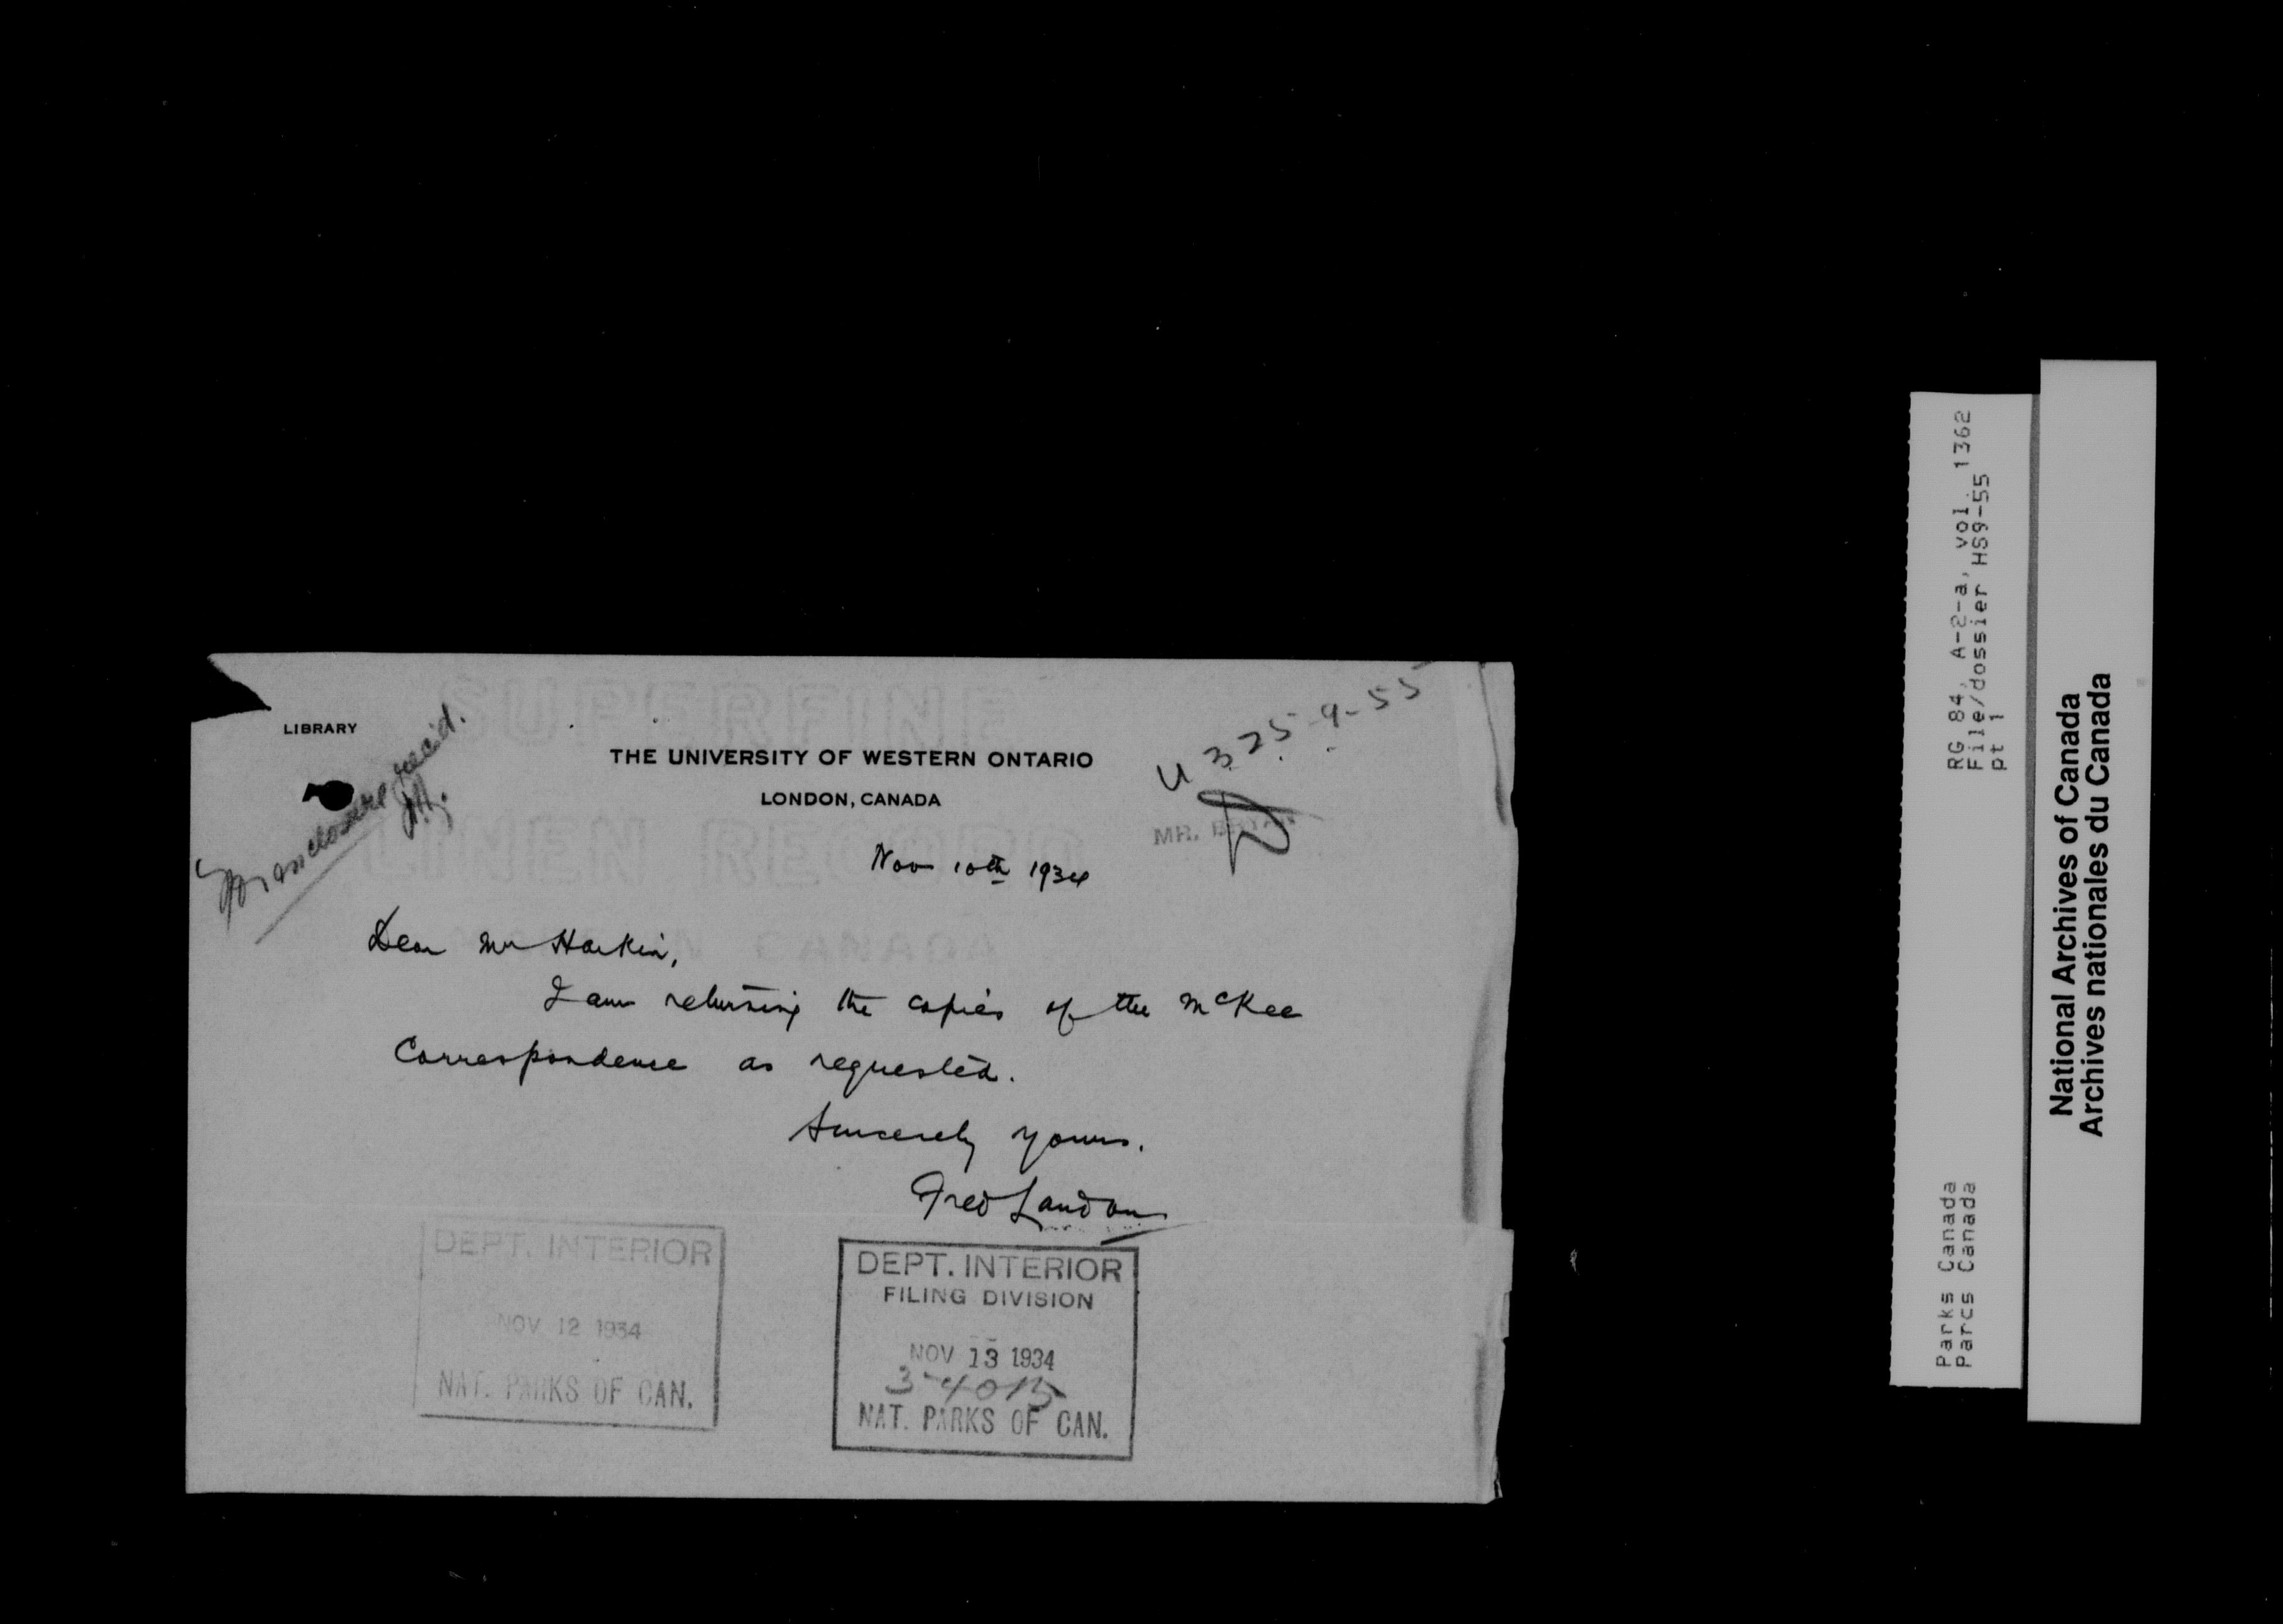 LIBRARY
THE UNIVERSITY OF WESTERN ONTARIO
LONDON, CANADA
U325-9-55
MR. BRYAN
enclosure rec'd.
SUPERFINE
LINEN RECORD
MADE IN CANADA
Nov 10th 1934
Dear Mr Harkin,
I am returning the copies of the McKee
Correspondence as requested.
Sincerely yours.
Fred Landon
DEPT. INTERIOR
NOV 12 1934
NAT. PARKS OF CAN.
DEPT. INTERIOR
FILING DIVISION
NOV 13 1934
NAT. PARKS OF CAN.
RG 84, A-2-a, vol. 1362
File/dossier HS9-55
pt 1
Parks Canada
Parcs Canada
National Archives of Canada
Archives nationales du Canada